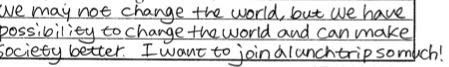 we may not change the world, but we have
possibility to change the world and can make
society better. I want to join a lunch trip so much!